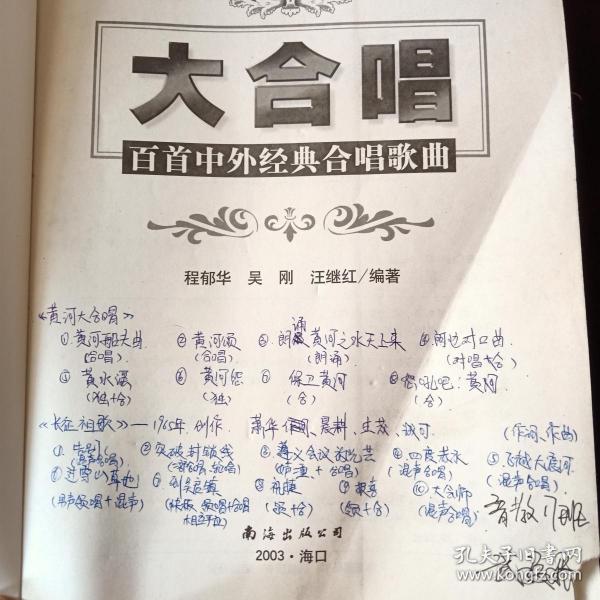 大合唱
百首中外经典合唱歌曲
程郁华 吴 刚 汪继红/编著
《黄河大合唱》
①黄河船夫曲 ②黄河颂 ③朗诵 黄河之水天上来 ④河边对口曲
(合唱) (合唱) (朗诵) (对唱+合)
⑤黄水谣 ⑥黄河怨 ⑦保卫黄河 ⑧怒吼吧:黄河
(独+合) (独) (合) (合)
《长征组歌》—1965年创作 萧华 晨耕、生茂、 (作词、作曲)
①告别 ②突破封锁线 ③遵义会议放光芒 ④四度赤水 ⑤飞越大渡河
(混声合唱) + 合唱) (混声合唱) (混声合唱)
⑥过雪山草地 ⑦到吴起镇 ⑧祝捷 ⑨报喜 ⑩大会师
(男声领唱+混声) 领唱+合唱 (领+合) (领+合) (混声合唱)
音教 班
南海出版公司
2003·海口
孔夫子旧书网